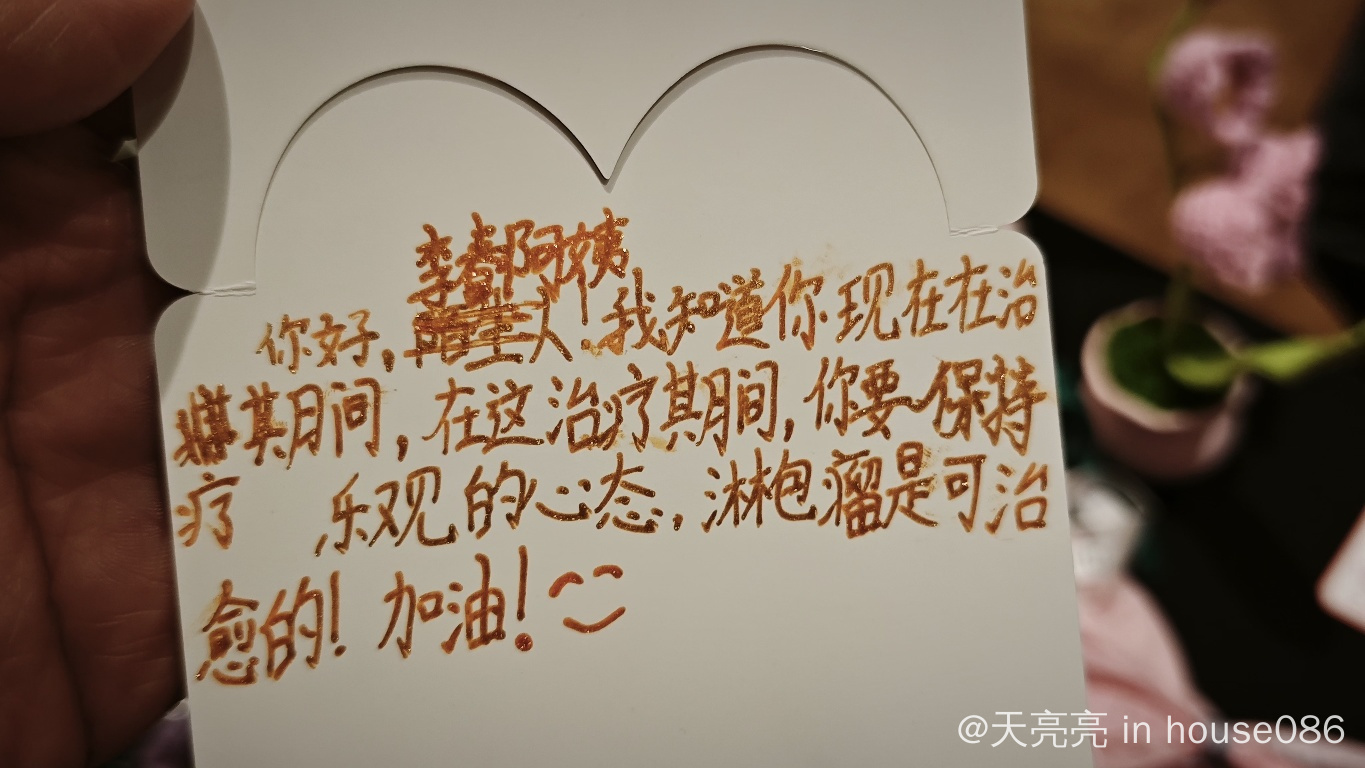 李春阿姨
你好,陌生人!我知道你现在在治
期间,在这治疗期间,你要保持
疗 乐观的心态,淋包瘤是可治
愈的!加油!
@天亮亮 in house086